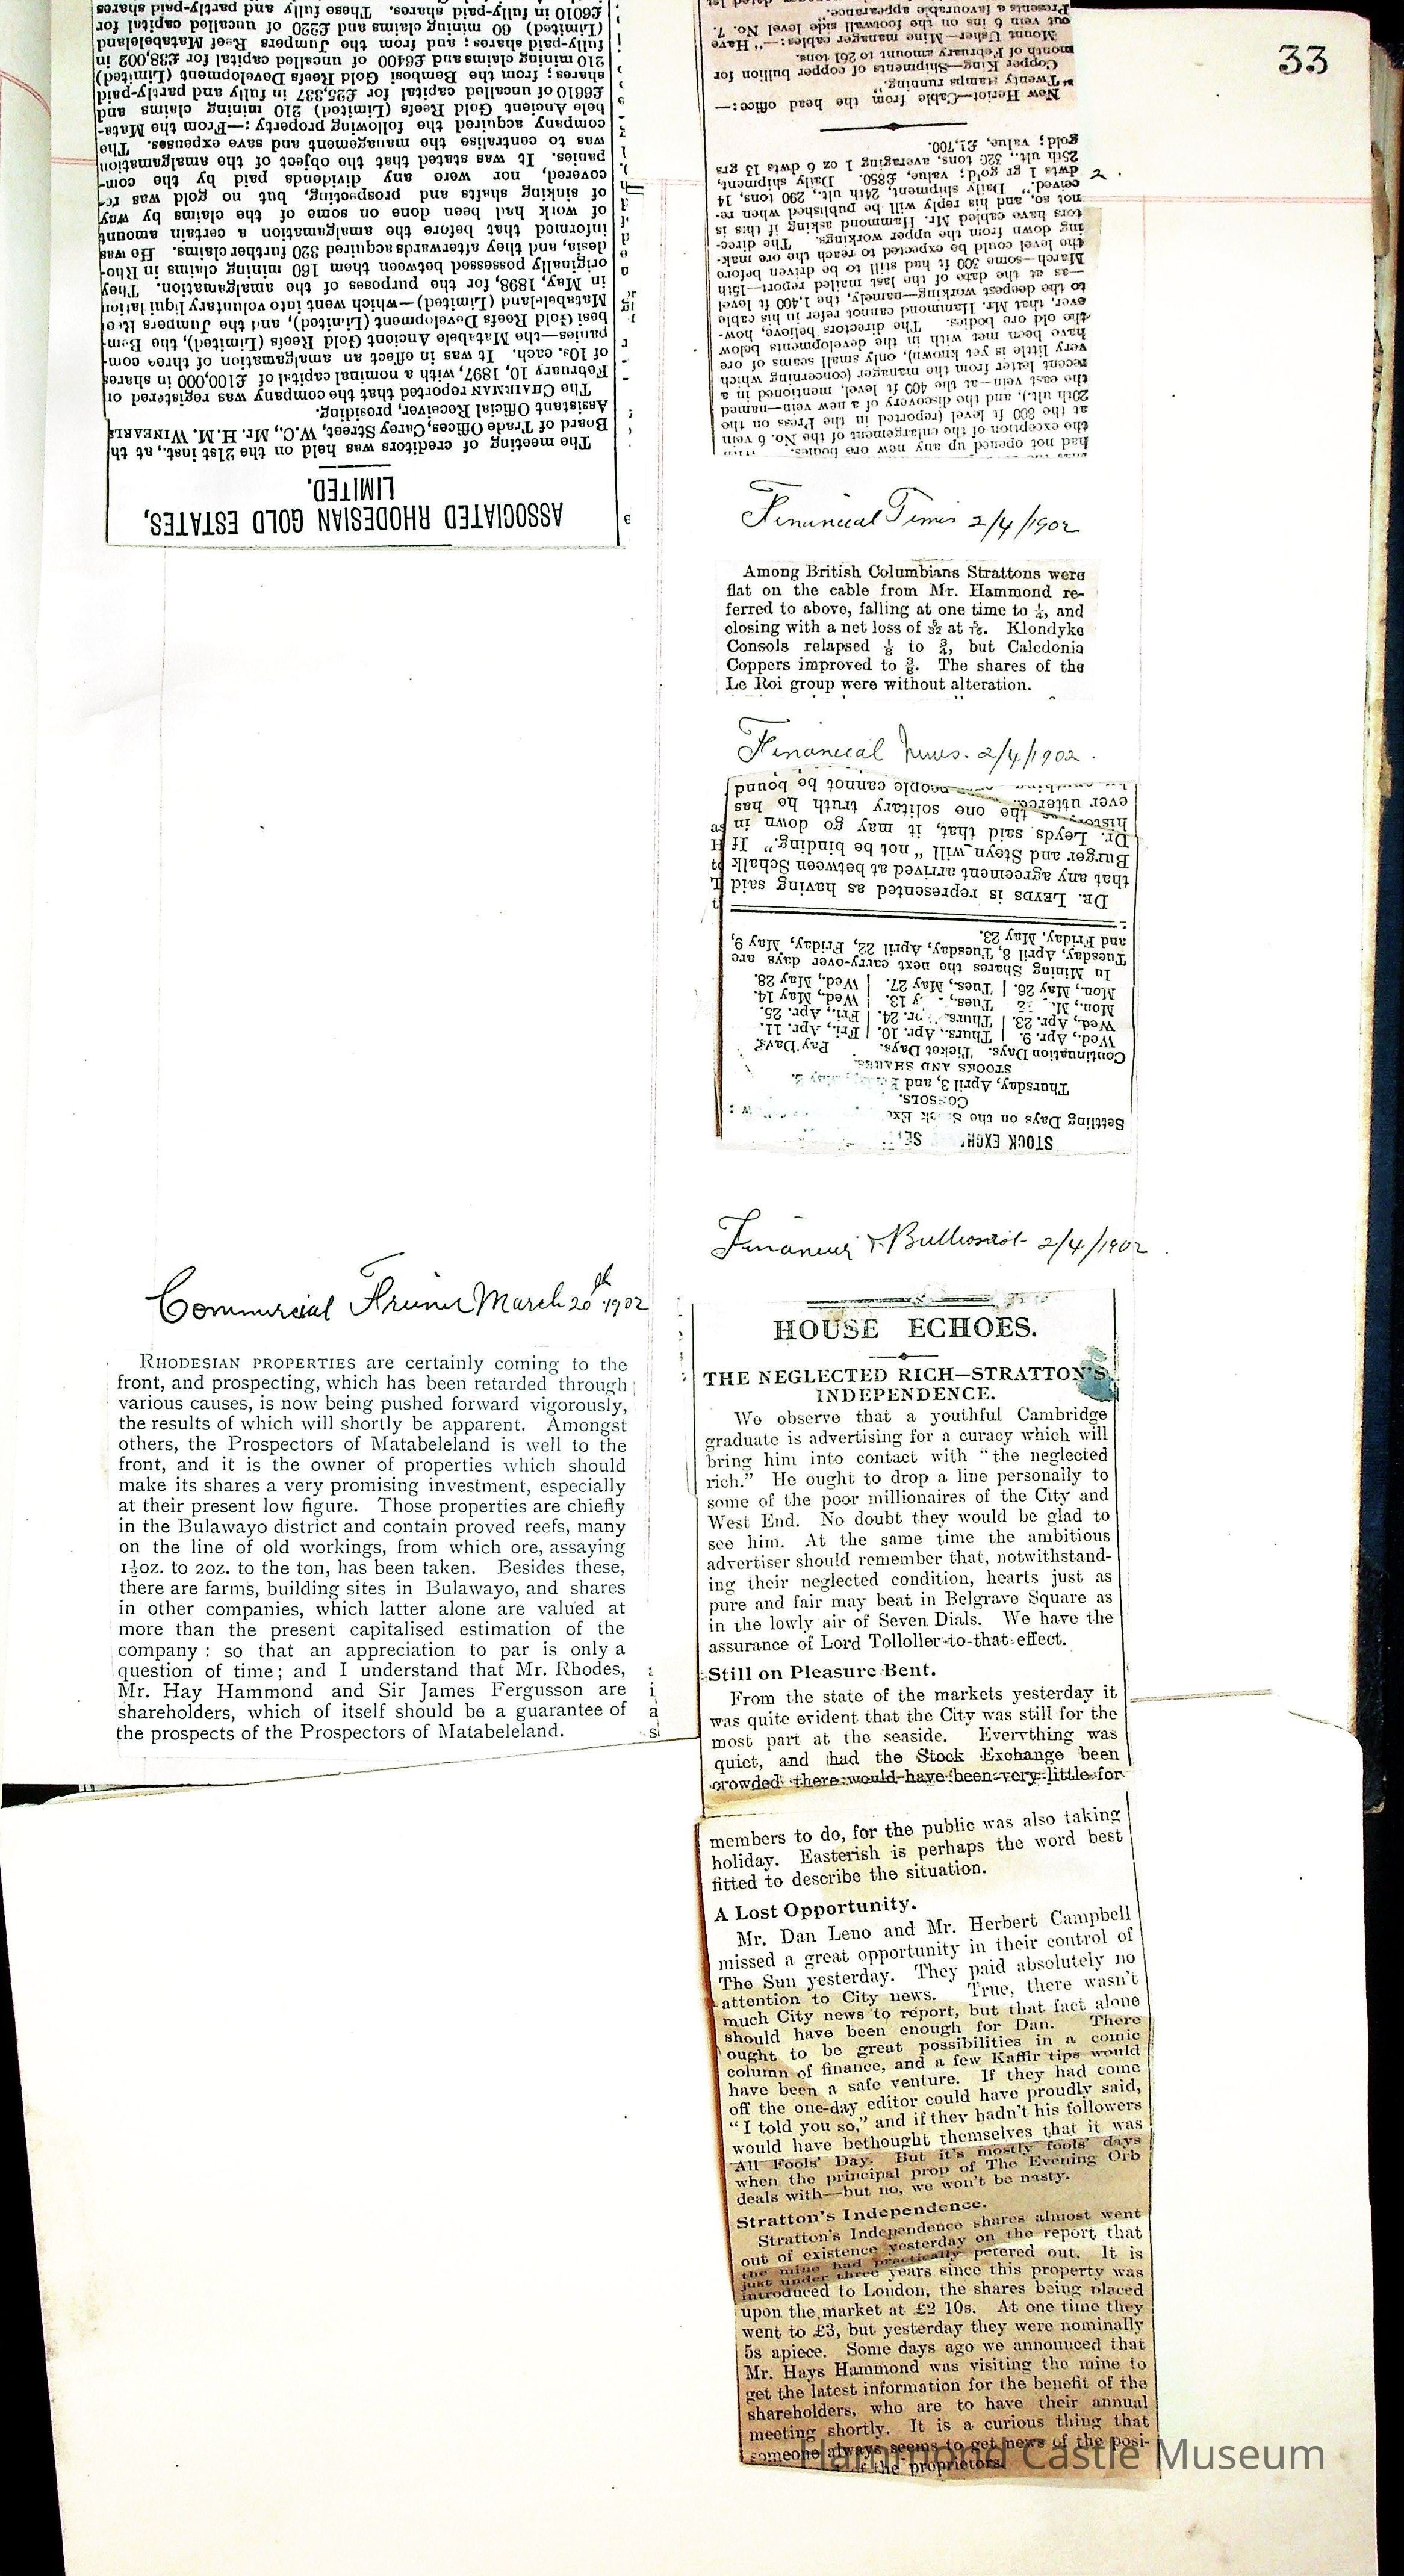 33
ASSOCIATED RHODESIAN GOLD ESTATES,
LIMITED.
The meeting of creditors was held on the 21st inst., at th
Board of Trade Offices, Carey Street, W.C., Mr. H. M. WINEARLS
Assistant Official Receiver, presiding.
The CHAIRMAN reported that the company was registered on
February 10, 1897, with a nominal capital of £100,000 in shares
of 10s. each. It was in effect an amalgamation of three com-
panies—the Matabele Ancient Gold Reefs (Limited), the Bem-
besi Gold Reefs Development (Limited), and the Jumpers Reef
Matabeleland (Limited)—which went into voluntary liquidation
in May, 1898, for the purposes of the amalgamation. They
originally possessed between them 160 mining claims in Rho-
desia, and they afterwards acquired 320 further claims. He was
informed that before the amalgamation a certain amount
of work had been done on some of the claims by way
of sinking shafts and prospecting, but no gold was re-
covered, nor were any dividends paid by the com-
panies. It was stated that the object of the amalgamation
was to centralise the management and save expenses. The
company acquired the following property:—From the Mata-
bele Ancient Gold Reefs (Limited) 210 mining claims and
£6610 of uncalled capital for £25,337 in fully and partly-paid
shares; from the Bembesi Gold Reefs Development (Limited)
210 mining claims and £6400 of uncalled capital for £38,002 in
fully-paid shares; and from the Jumpers Reef Matabeleland
(Limited) 60 mining claims and £220 of uncalled capital for
£6010 in fully-paid shares. These fully and partly-paid shares
Commercial March 20th 1902
RHODESIAN PROPERTIES are certainly coming to the
front, and prospecting, which has been retarded through
various causes, is now being pushed forward vigorously,
the results of which will shortly be apparent. Amongst
others, the Prospectors of Matabeleland is well to the
front, and it is the owner of properties which should
make its shares a very promising investment, especially
at their present low figure. Those properties are chiefly
in the Bulawayo district and contain proved reefs, many
on the line of old workings, from which ore, assaying
1½oz. to 2oz. to the ton, has been taken. Besides these,
there are farms, building sites in Bulawayo, and shares
in other companies, which latter alone are valued at
more than the present capitalised estimation of the
company: so that an appreciation to par is only a
question of time; and I understand that Mr. Rhodes,
Mr. Hay Hammond and Sir James Fergusson are
shareholders, which of itself should be a guarantee of
the prospects of the Prospectors of Matabeleland.
had not opened up any new ore bodies. With
the exception of the enlargement of the No. 6 vein
at the 800 ft level (reported in the Press on the
20th ult.), and the discovery of a new vein—named
the east vein—at the 400 ft level, mentioned in a
recent letter from the manager (concerning which
very little is yet known), only small seams of ore
have been met with in the developments below
the old ore bodies. The directors believe, how-
ever, that Mr. Hammond cannot refer in his cable
to the deepest working—namely, the 1,400 ft level
—as at the date of the last mailed report—15th
March—some 300 ft had still to be driven before
the level could be expected to reach the ore mak-
ing down from the upper workings. The direc-
tors have cabled Mr. Hammond asking if this is
not so, and his reply will be published when re-
ceived." Daily shipment, 24th ult., 290 tons, 14
dwts 1 gr gold; value, £850. Daily shipment,
25th ult., 320 tons, averaging 1 oz 6 dwts 13 grs
gold; value, £1,700.
New Heriot—Cable from the head office:—
"Twenty stamps running."
Copper King—Shipments of copper bullion for
month of February amount to 261 tons.
Mount Usher—Mine manager cables:—"Have
cut vein 6 ins on the footwall side level No. 7.
Presents a favourable appearance.
2.
Financial Times 2/4/1902
Among British Columbians Strattons were
flat on the cable from Mr. Hammond re-
ferred to above, falling at one time to ¼, and
closing with a net loss of at Klondyke
Consols relapsed ⅛ to ¾, but Caledonia
Coppers improved to ⅜. The shares of the
Le Roi group were without alteration.
Financial News. 2/4/1902.
STOCK EXCH
Settling Days on the
CONSOLS.
Thursday, April 3, and
STOCKS AND SHARES.
Continuation Days. Ticket Days. Pay Days
Wed., Apr. 9. | Thurs., Apr. 10. | Fri., Apr. 11.
Wed., Apr. 23. | Thurs. 24. | Fri., Apr. 25.
Mon., Tues., 13. | Wed., May 14.
Mon., May 26. | Tues., May 27. | Wed., May 28.
In Mining Shares the next carry-over days are
Tuesday, April 8, Tuesday, April 22, Friday, May 9,
and Friday, May 23.
DR. LEYDS is represented as having said
that any agreement arrived at between Schalk
Burger and Steyn will "not be binding." If
Dr. Leyds said that, it may go down in
history as the one solitary truth he has
ever uttered. people cannot be bound
Financier & Bullionist 2/4/1902.
HOUSE ECHOES.
THE NEGLECTED RICH—STRATTON'S
INDEPENDENCE.
We observe that a youthful Cambridge
graduate is advertising for a curacy which will
bring him into contact with "the neglected
rich." He ought to drop a line personally to
some of the poor millionaires of the City and
West End. No doubt they would be glad to
see him. At the same time the ambitious
advertiser should remember that, notwithstand-
ing their neglected condition, hearts just as
pure and fair may beat in Belgrave Square as
in the lowly air of Seven Dials. We have the
assurance of Lord Tolloller to that effect.
Still on Pleasure Bent.
From the state of the markets yesterday it
was quite evident that the City was still for the
most part at the seaside. Everything was
quiet, and had the Stock Exchange been
crowded there would have been very little for
members to do, for the public was also taking
holiday. Easterish is perhaps the word best
fitted to describe the situation.
A Lost Opportunity.
Mr. Dan Leno and Mr. Herbert Campbell
missed a great opportunity in their control of
The Sun yesterday. They paid absolutely no
attention to City news. True, there wasn't
much City news to report, but that fact alone
should have been enough for Dan. There
ought to be great possibilities in a comic
column of finance, and a few Kaffir tips would
have been a safe venture. If they had come
off the one-day editor could have proudly said,
"I told you so," and if they hadn't his followers
would have bethought themselves that it was
All Fools' Day. But it's mostly fools' days
when the principal prop of The Evening Orb
deals with—but no, we won't be nasty.
Stratton's Independence.
Stratton's Independence shares almost went
out of existence yesterday on the report that
the mine had practically petered out. It is
just under three years since this property was
introduced to London, the shares being placed
upon the market at £2 10s. At one time they
went to £3, but yesterday they were nominally
5s apiece. Some days ago we announced that
Mr. Hays Hammond was visiting the mine to
get the latest information for the benefit of the
shareholders, who are to have their annual
meeting shortly. It is a curious thing that
someone always seems to get news of the posi-
the proprietors.
Hammond Castle Museum